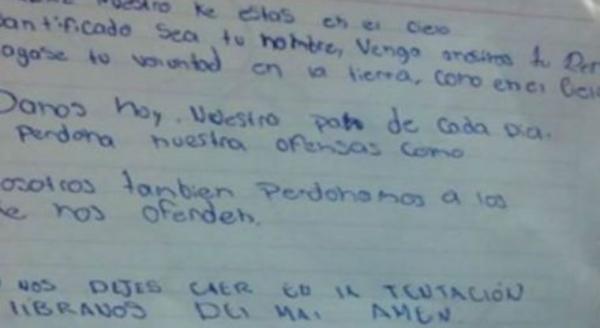 nuestro Ke estas en el cielo
santificado sea tu nombre, Venga
agase tu voluntad en la tierra, como en el Cielo
Danos hoy. Nuestro pan de cada Dia.
Perdona nuestra ofensas como
osotros tanbien Perdonamos a los
e nos ofenden.
NOS DEJES CAER EN LA TENTACIÓN
LIBRANOS DEL MAL AMEN